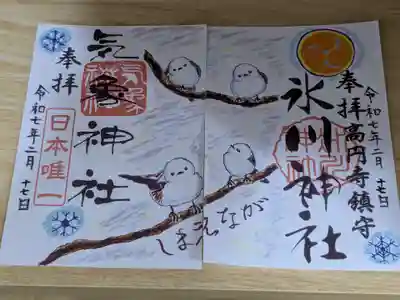 奉拝
高円寺鎮守
氷川神社
令和七年二月十七日
しまえなが
気象神社
奉拝
日本唯一
令和七年二月十七日